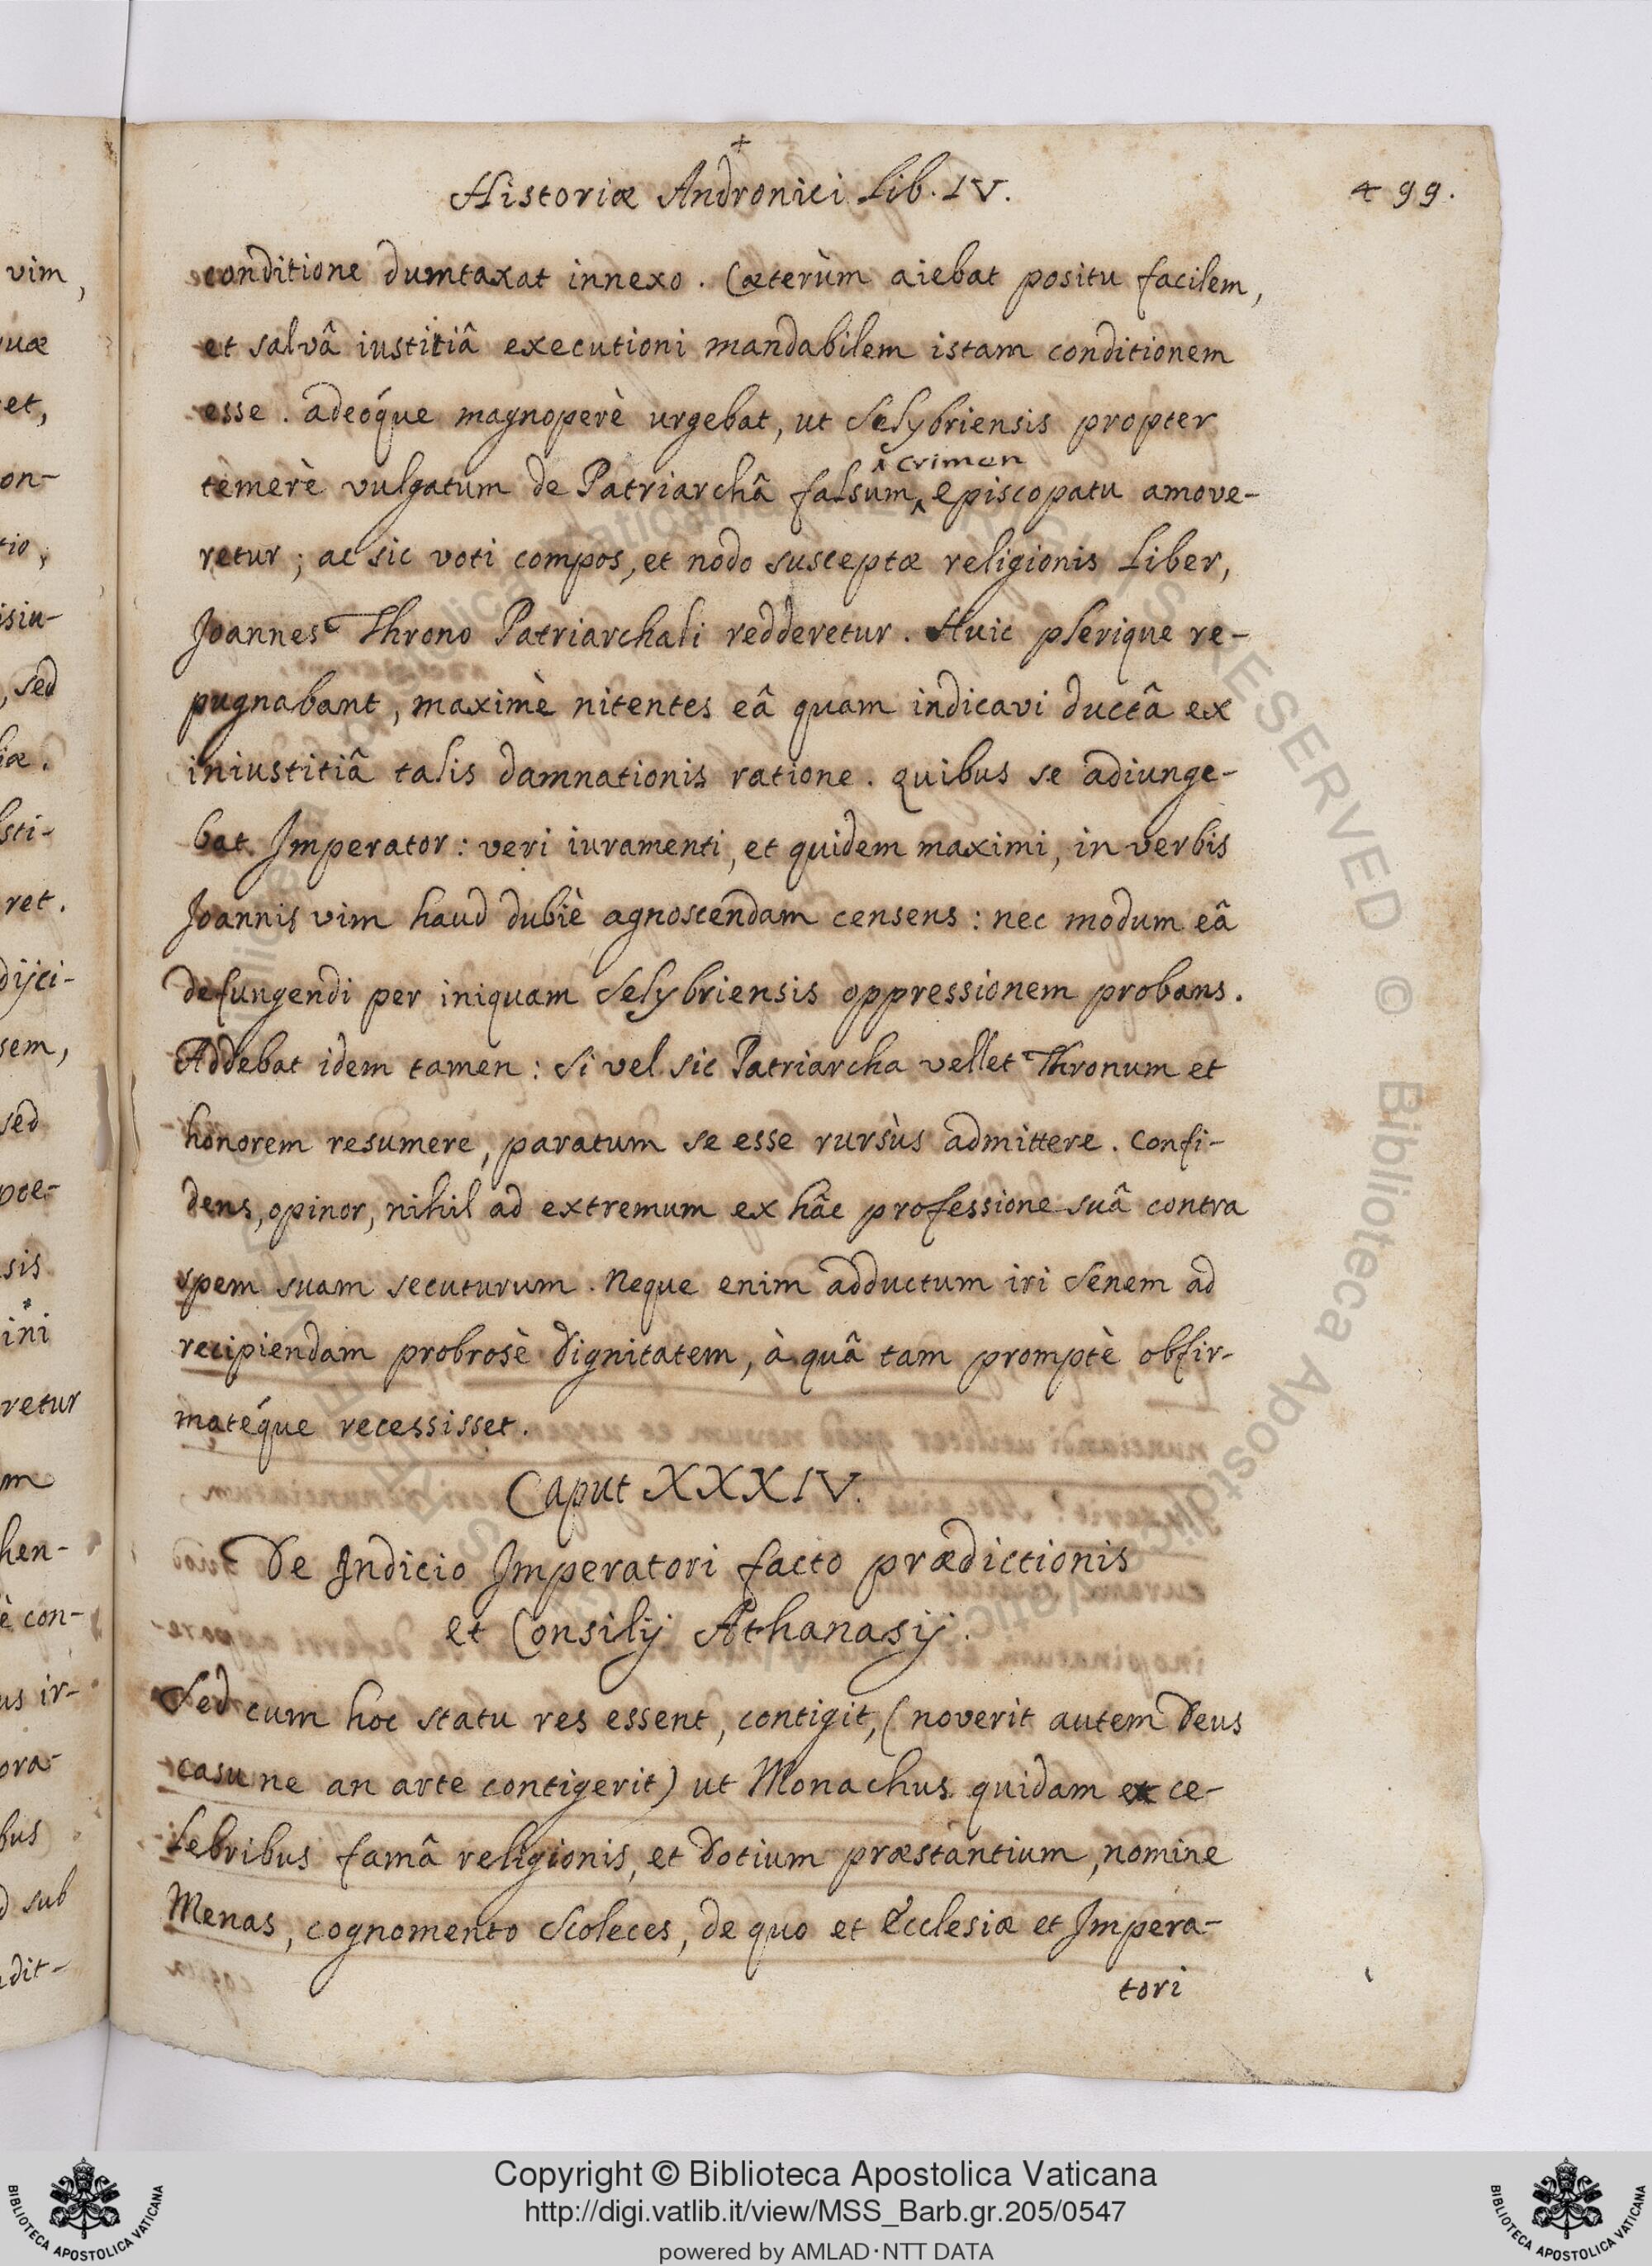 Historiæ Andronici Lib. IV.
499.
conditione dumtaxat innexo. Cæterùm aiebat positu facilem,
et salvâ iustitiâ executioni mandabilem istam conditionem
esse. adeóque magnoperè urgebat, ut Selybriensis propter
temerè vulgatum de Patriarchâ falsum crimen episcopatu amove-
retur; ac sic voti compos, et nodo susceptæ religionis Liber,
Joannes Throno Patriarchali redderetur. Huic plerique re-
pugnabant, maximè nitentes eâ quam indicavi ductâ ex
iniustitiâ talis damnationis ratione. quibus se adiunge-
bat Imperator: veri iuramenti, et quidem maximi, in verbis
Joannis vim haud dubiè agnoscendam censens: nec modum eâ
defungendi per iniquam Selybriensis oppressionem probans.
Addebat idem tamen: Si vel sic Patriarcha vellet Thronum et
honorem resumere, paratum se esse rursùs admittere. Confi-
dens, opinor, nihil ad extremum ex hâc professione suâ contra
spem suam secuturum. Neque enim adductum iri Senem ad
recipiendam probrosè dignitatem, à quâ tam promptè, obfir-
matéque recessisset.
Caput XXXIV.
De Indicio Imperatori facto prædictionis
et Consilij Athanasij.
Sed cum hoc statu res essent, contigit, (noverit autem Deus
casu ne an arte contigerit) ut Monachus quidam ex ce-
lebribus famâ religionis, et dotium præstantium, nomine
Menas, cognomento Scoleces, de quo et Ecclesiæ et Impera-
tori
vim,
uæ
et,
on-
tio,
isiu-
, sed
iæ.
sti-
ret.
dijci-
sem,
sed
poe-
sis
ini
retur
m
hen-
è con-
us ir-
ora-
bus
d sub
dit-
Copyright © Biblioteca Apostolica Vaticana
http://digi.vatlib.it/view/MSS_Barb.gr.205/0547
powered by AMLAD·NTT DATA
BIBLIOTECA APOSTOLICA VATICANA
BIBLIOTECA APOSTOLICA VATICANA